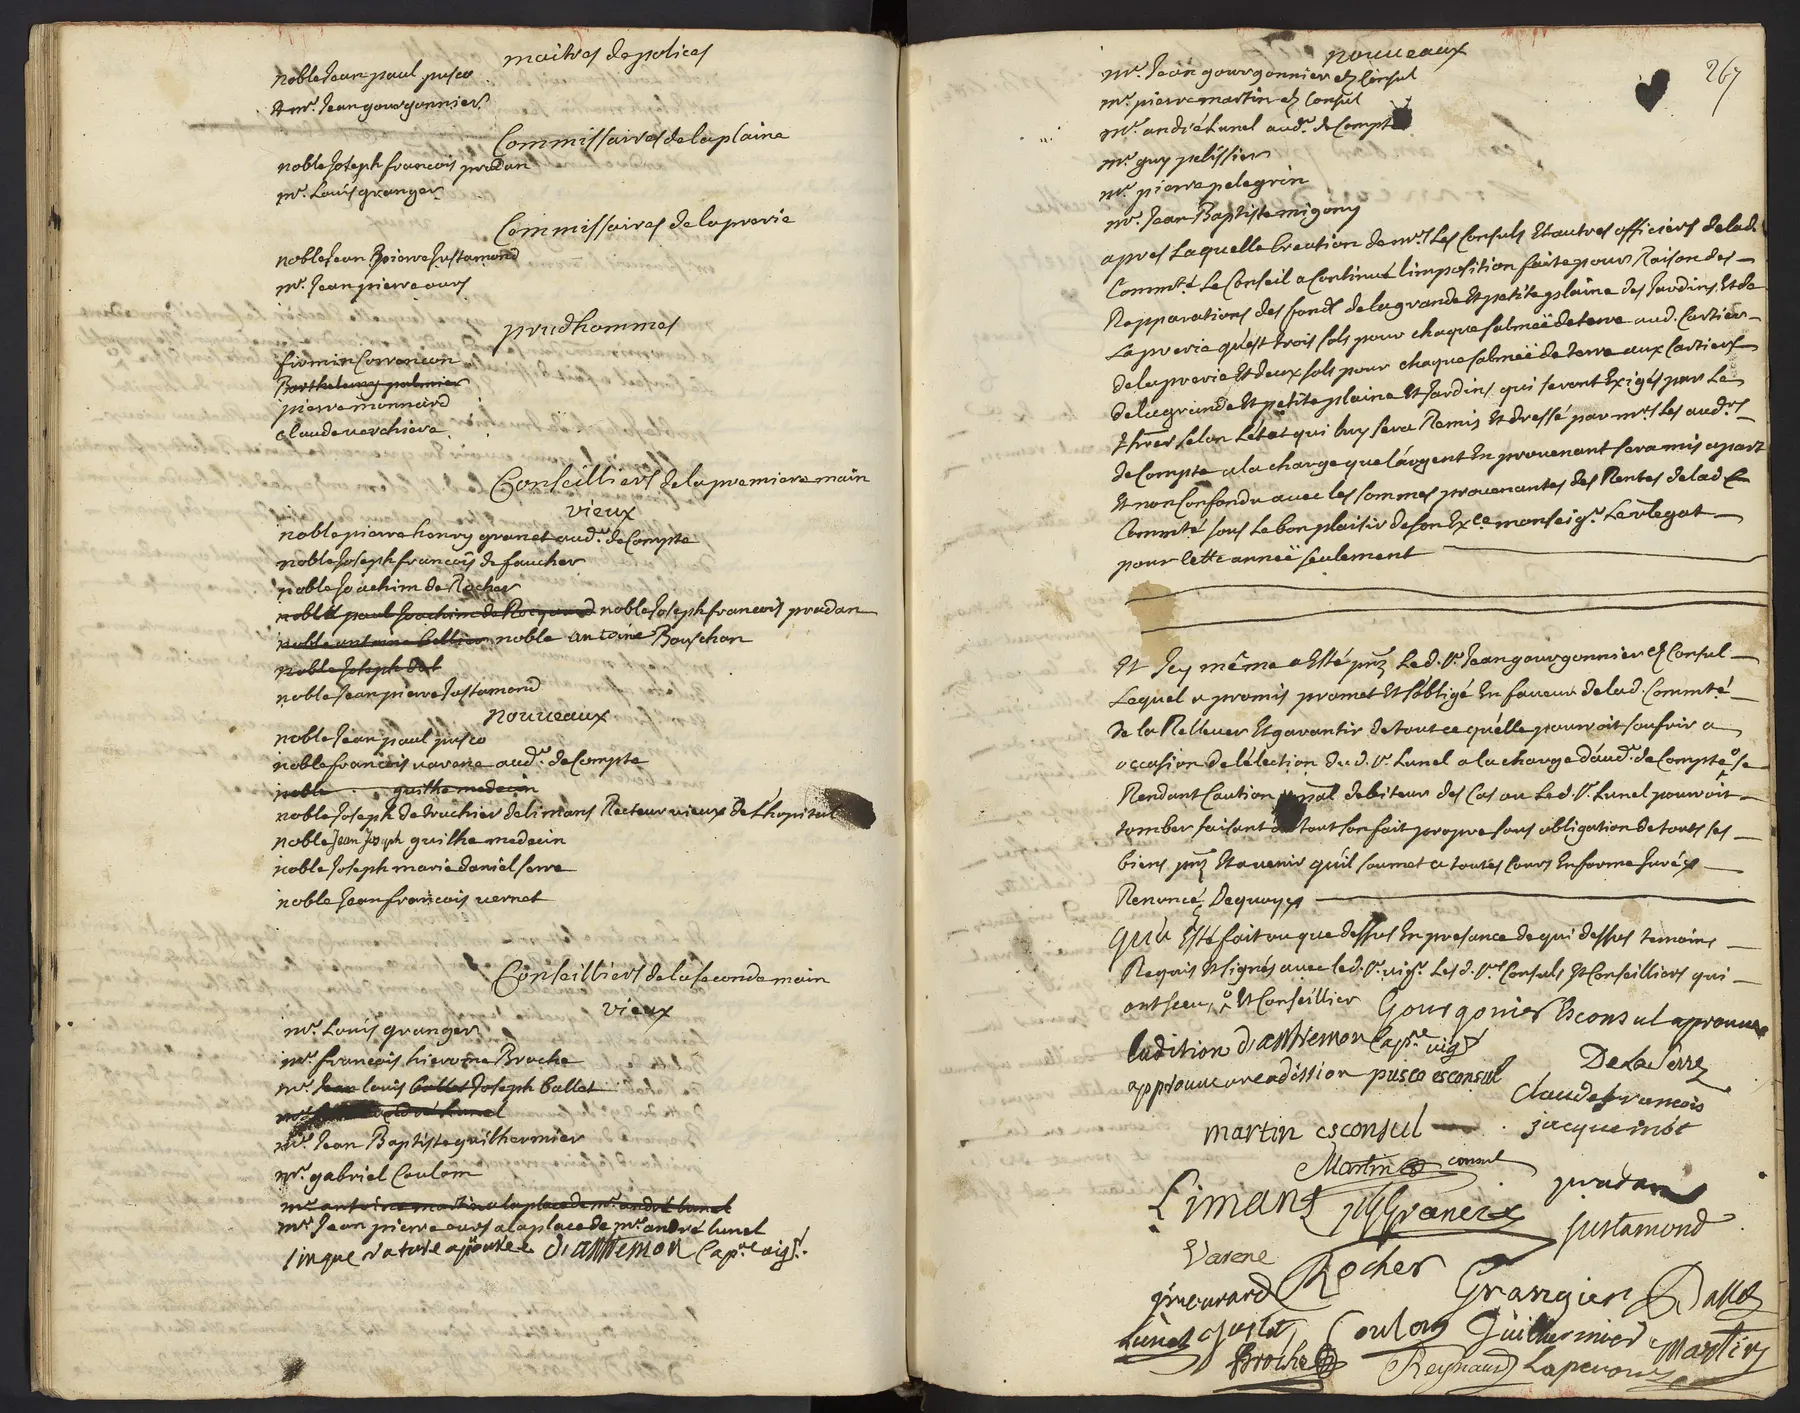 maitres de polices
noble Jean paul pusco
& mr. Jean gourgonnier
Commissaires de la plaine
noble Joseph francois pradan
mr. Louis granger
Commissaires de la prerie
noble Jean pierre Justamond
mr. Jean pierre ours
prudhommes
firmin Correncon
Barthelemy palmier
pierre monnard
Claude verchiere
Conseilliers de la premiere main
vieux
noble pierre henry granet audr. de Compte
noble Joseph francois de faucher
noble Joachim de Rocher
noble paul Joachim de Rocquard noble Joseph francois pradan
noble antoine Cellier noble antoine Bouschon
noble Joseph
noble Jean pierre Justamond
nouueaux
noble Jean paul pusco
noble francois varene audr. de Compte
noble guilhe medecin
noble Joseph de truchier de limans Recteur vieux de Lhopital
noble Jean Joseph guilhe medecin
noble Joseph marie daniel serre
noble Jean francois vernet
Conseilliers de la seconde main
vieux
mr. Louis granger
mr. francois hierome Broche
mr. Jean louis ballet Joseph ballet
mr. andré Lunel
mr. Jean Baptiste guilhermier
mr. gabriel Coulom
mr. antoine martin a la place de mr. andré lunel
mr. Jean pierre ours a la place de mr. andré lunel
cinque rature aprouvee d'anthemon Capne. vigr.
267
nouueaux
mr. Jean gourgonnier ex Consul
mr. pierre martin ex Consul
mr. andré Lunel audr. de Compte
mr. guy pelissier
mr. pierre pelegrin
mr. Jean Baptiste migony
apres Laquelle Creation de mrs. Les Consuls Et autres officiers de lad.
Commté. Le Conseil a Continué l'imposition faite pour Raison des
Repparations des fonds de la grande Et petite plaine des Jardins Et de
La prerie qu'est trois sols pour chaque salmeë de terre aud. Cartier
de la prerie Et deux sols pour chaque salmeë de terre aux Cartiers
de la grande Et petite plaine Et Jardins, qui seront Exigés par Le
thrér selon L'état qui luy sera Remis Et dressé par mrs. Les audrs.
de Compte a la charge que l'argent En prouenant sera mis a part
Et non Confondu auec les sommes prouenantes des Rentes de lad.
Commté. sous Le bon plaisir de son Exce. monseigr. Le vlegat
pour Cette anneë seulement
Et Icy même a Esté pnt Le d. Sr. Jean gourgonnier ex Consul
Lequel a promis promet Et s'obligé En faueur de lad. Commté.
de la Relleuer Et garantir de tout ce qu'elle pourroit soufrir a
occasion de l'élection du d. Sr. Lunel a la charge d'audr. de Compte se
Rendant Caution debiteur des Cas ou Le d. Sr. Lunel pourroit
tomber faisant du tout son fait propre sous obligation de touts ses
biens pnts Et auenir qu'il soumet a toutes Cours En forme Jurés
Renoncé, Dequoy
qu'a Esté fait ou que dessus En presance de qui dessus temoins
Requis Et signés auec led. Sr. vigr. Les d. Srs. Consuls Et Conseilliers qui
ont sceu, Et Conseillier Gourgonier Esconsul aprouue
ladition d'anthemon Capne. vigr.
approuue ureadission pusco esconsul
De la Serre
Claude francois
jacqueinot
martin esconsul
Martin consul
pradan
Limans Granet
Justamond
Varene
Rocher
Grangier Ballet
Coulom Guilhermier Martin
Lunel
Broche Reynaud Laperou